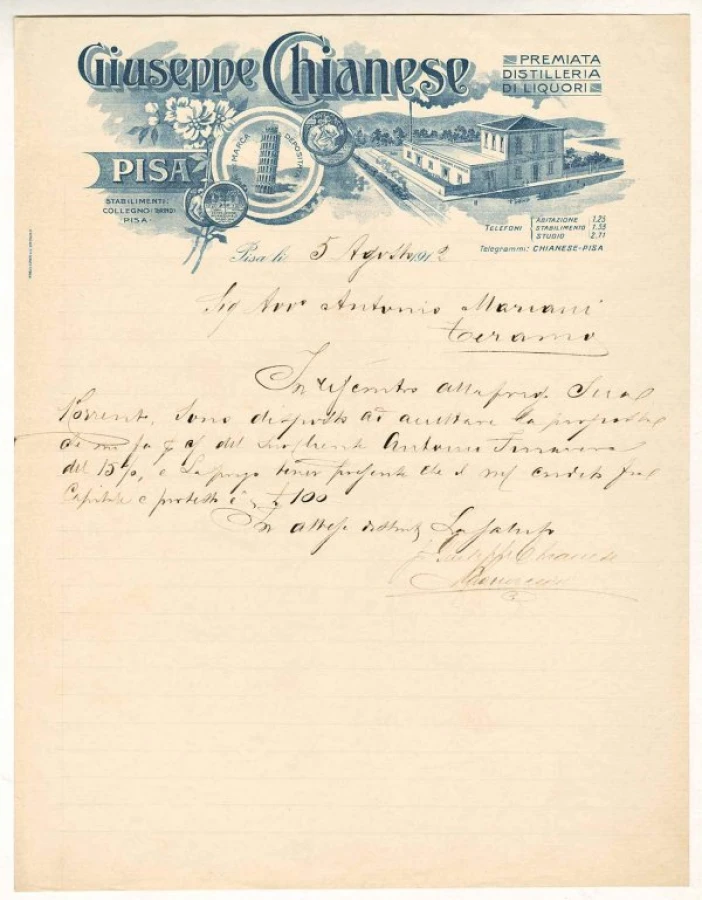 Giuseppe Chianese
PREMIATA
DISTILLERIA
DI LIQUORI
MARCA DEPOSITATA
PISA
STABILIMENTI:
COLLEGNO (TORINO)
PISA
TELEFONI
ABITAZIONE 1.25
STABILIMENTO 1.55
STUDIO 2.71
Telegrammi: CHIANESE-PISA
Pisa li 5 Agosto 1912
Sig Avv° Antonio Marcani
Teramo
In riscontro alla preg. Sua
Corrente, sono disposto ad accettare la proposta
che mi fa del Antonio
del 15%, e La prego tener presente che il mio credito fra
Capitale e protesto è 100
In attesa La saluto
Giuseppe Chianese